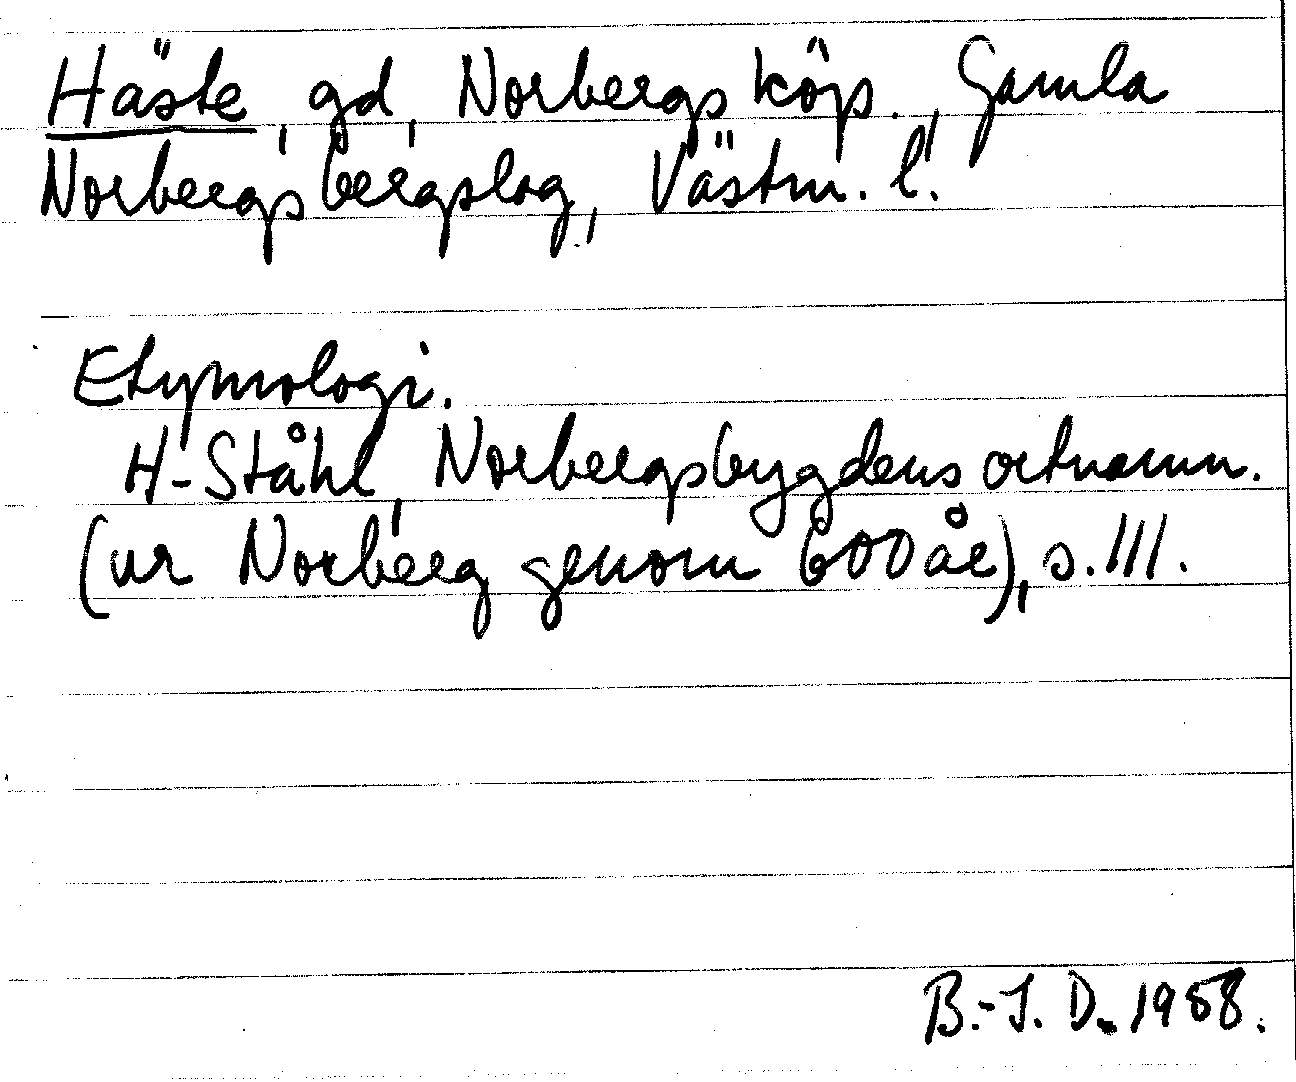 Häste, gd, Norbergs köp., Gamla
Norbergs bergslag, Västm. l.
Etymologi.
H. Ståhl, Norbergsbygdens ortnamn.
(ur Norberg genom 600 år), s. 111.
B.-I. D. 1958.